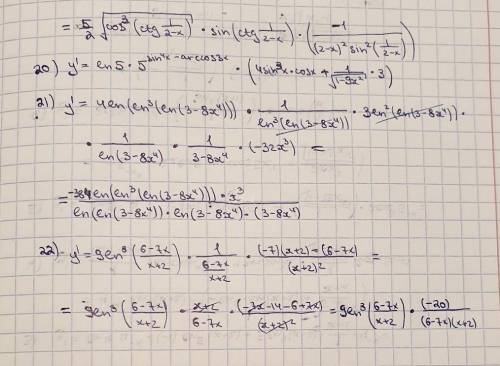 = -5/2 √(cos³(ctg 1/(2-x))) · sin(ctg 1/(2-x)) · (-1/((2-x)² sin²(1/(2-x))))
20) y' = ln5 · 5^(sin⁴x - arccos3x) · (4sin³x · cosx + 1/√(1-9x²) · 3)
21) y' = 4ln(ln³(ln(3-8x⁴))) · 1/(ln³(ln(3-8x⁴))) · 3ln²(ln(3-8x⁴)) ·
· 1/(ln(3-8x⁴)) · 1/(3-8x⁴) · (-32x³) =
= (-384ln(ln³(ln(3-8x⁴))) · x³)/(ln(ln(3-8x⁴)) · ln(3-8x⁴) · (3-8x⁴))
22) y' = 9ln⁸((6-7x)/(x+2)) · 1/((6-7x)/(x+2)) · ((-7)(x+2) - (6-7x))/(x+2)² =
= 9ln⁸((6-7x)/(x+2)) · (x+2)/(6-7x) · (-7x-14-6+7x)/(x+2)² = 9ln⁸((6-7x)/(x+2)) · (-20)/((6-7x)(x+2))